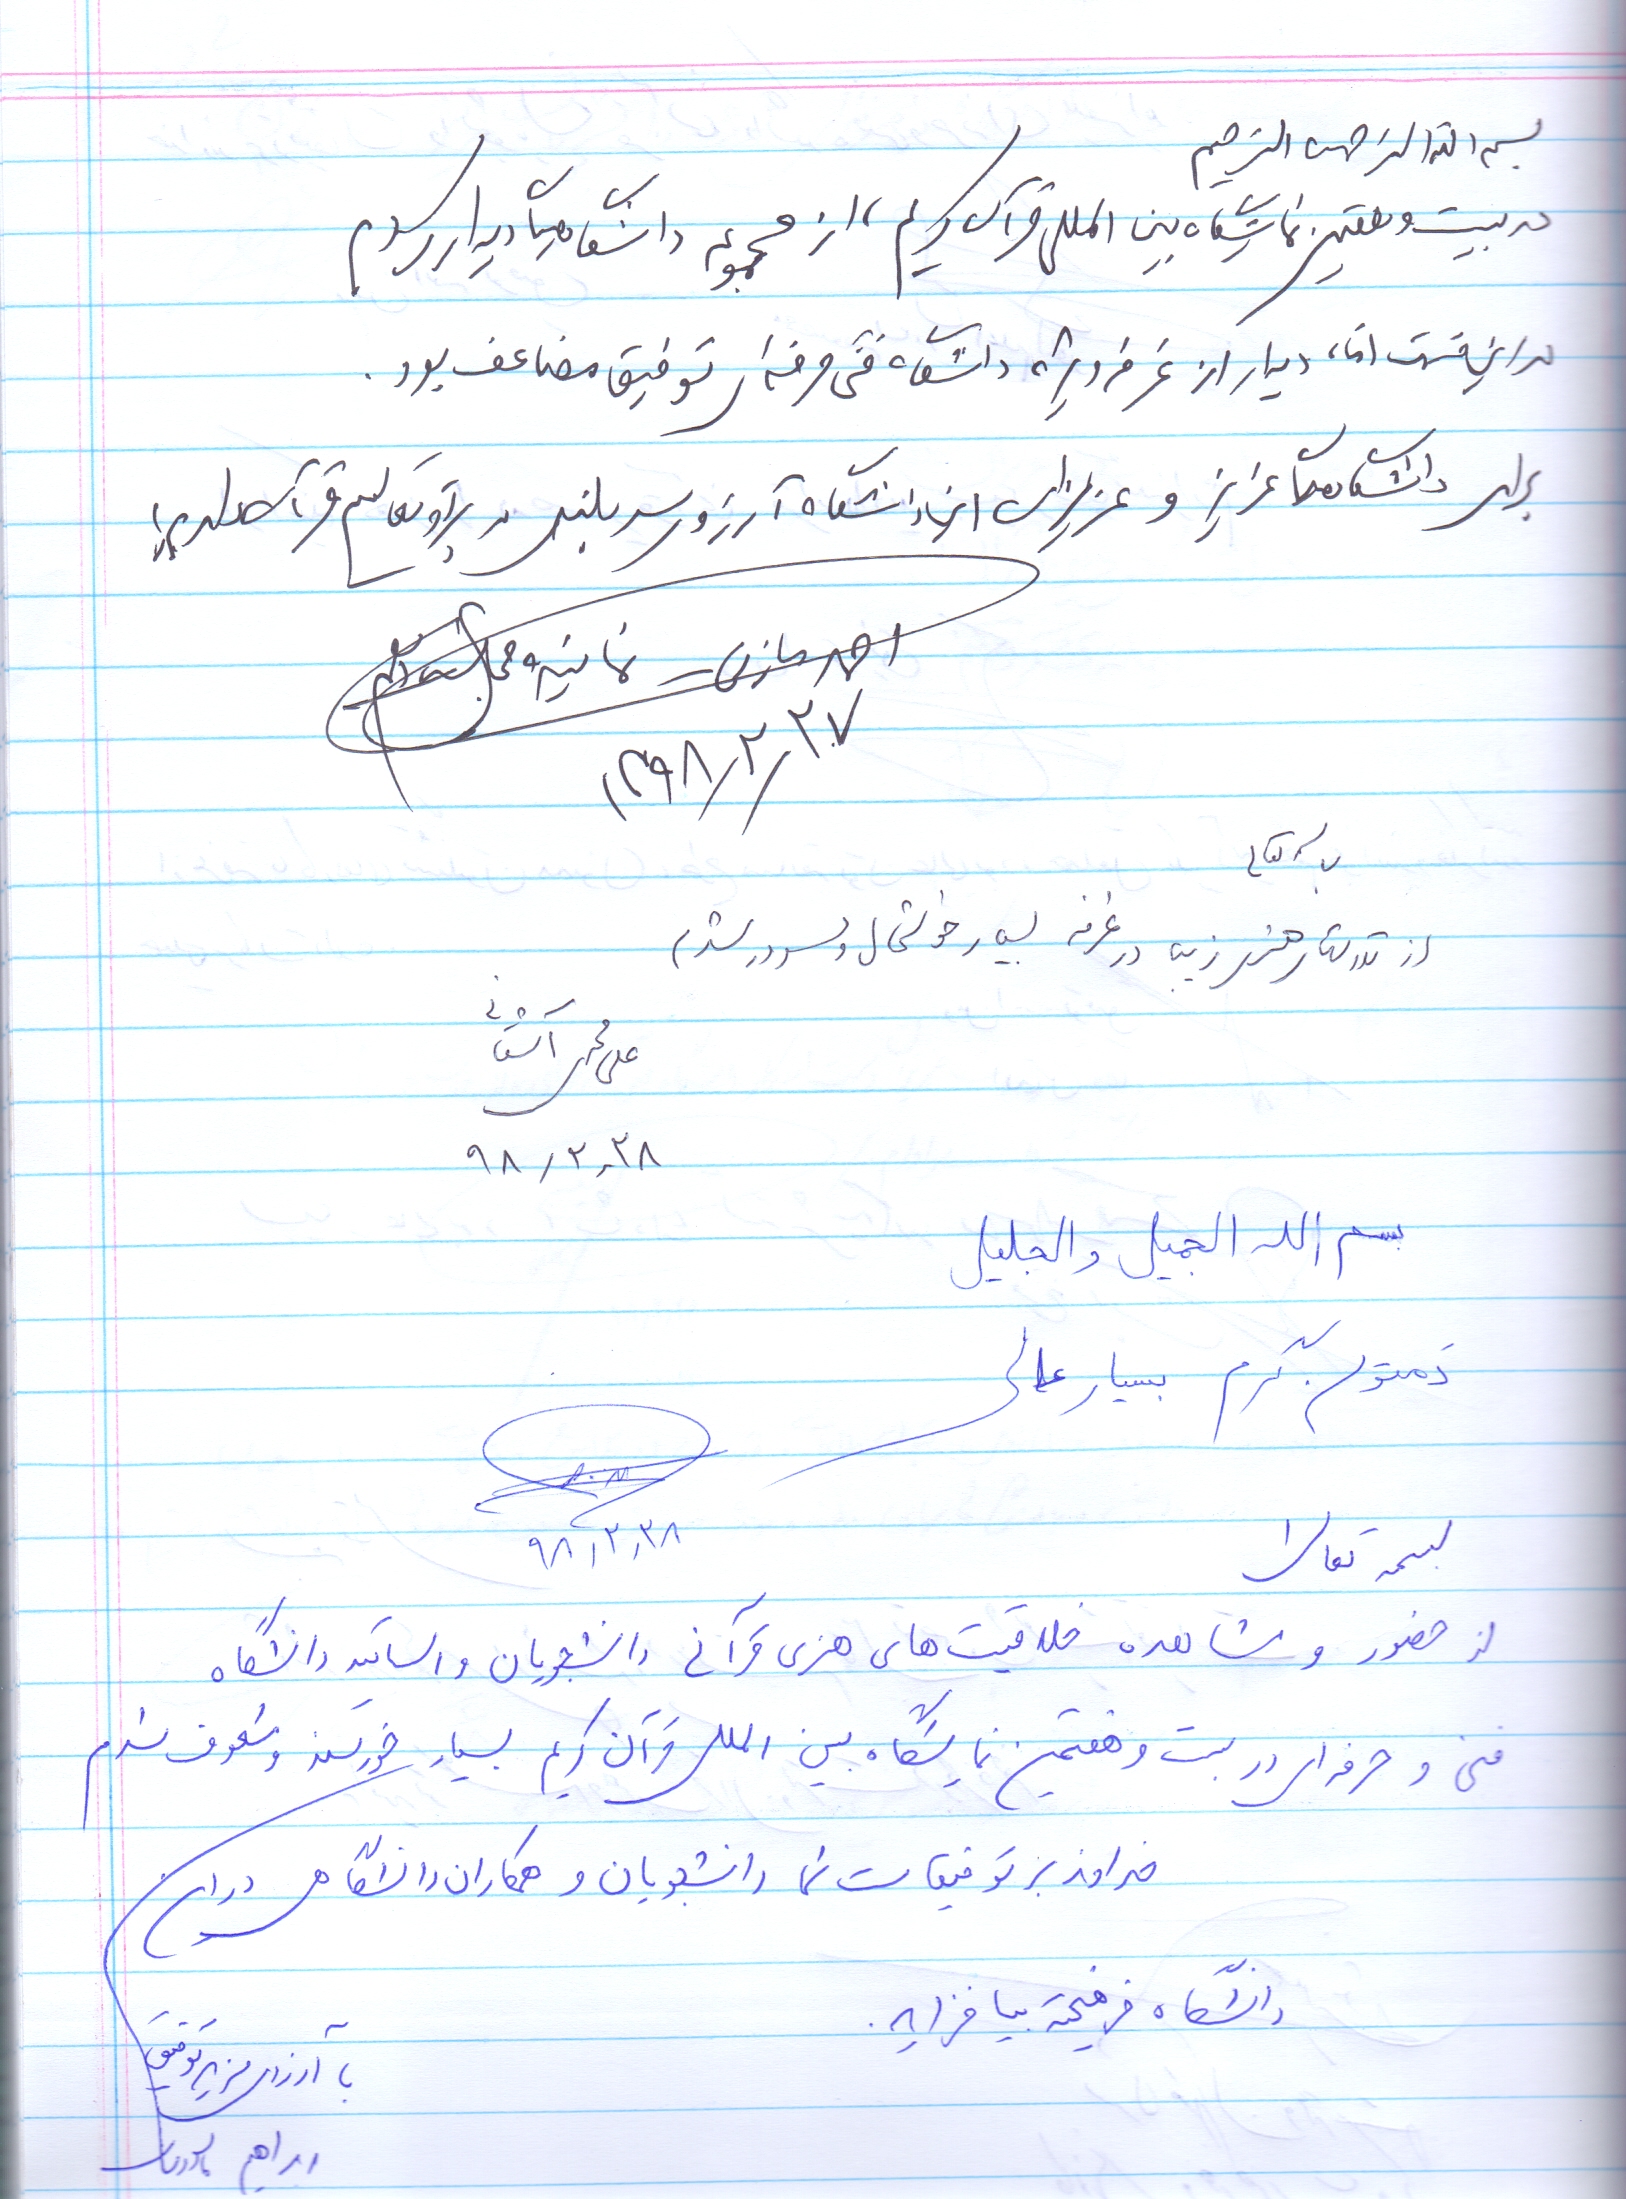 بسم الله الرحمن الرحیم
در بیست و هفتمین نمایشگاه بین المللی قرآن کریم، از مجموعه دانشگاهها دیدار کردم
در این قسمت اما، دیدار از غرفه ویژه دانشگاه فنی حرفه‌ای توفیق مضاعف بود.
برای دانشگاههای عزیز و عزیزان این دانشگاه آرزوی سربلندی در پرتو تعالیم قرآن
احمد مازنی - نماینده مجلس
۱۳۹۸/۲/۲۷
باسمه تعالی
از تلاشهای هنری زیبا در غرفه بسیار خوشحال و مسرور شدم
علی محمد آشنایی
۹۸/۲/۲۸
بسم الله الجمیل والجلیل
دمتون گرم بسیار عالی
۹۸/۲/۲۸
بسمه تعالی
از حضور و مشاهده خلاقیت های هنری قرآنی دانشجویان و اساتید دانشگاه
فنی و حرفه ای در بیست و هفتمین نمایشگاه بین المللی قرآن کریم بسیار خورسند و مشعوف شدم
خداوند بر توفیقات شما دانشجویان و همکاران دانشگاهی در این
دانشگاه فرهیخته بیافزاید.
با آرزوی مزید توفیق
ابراهیم